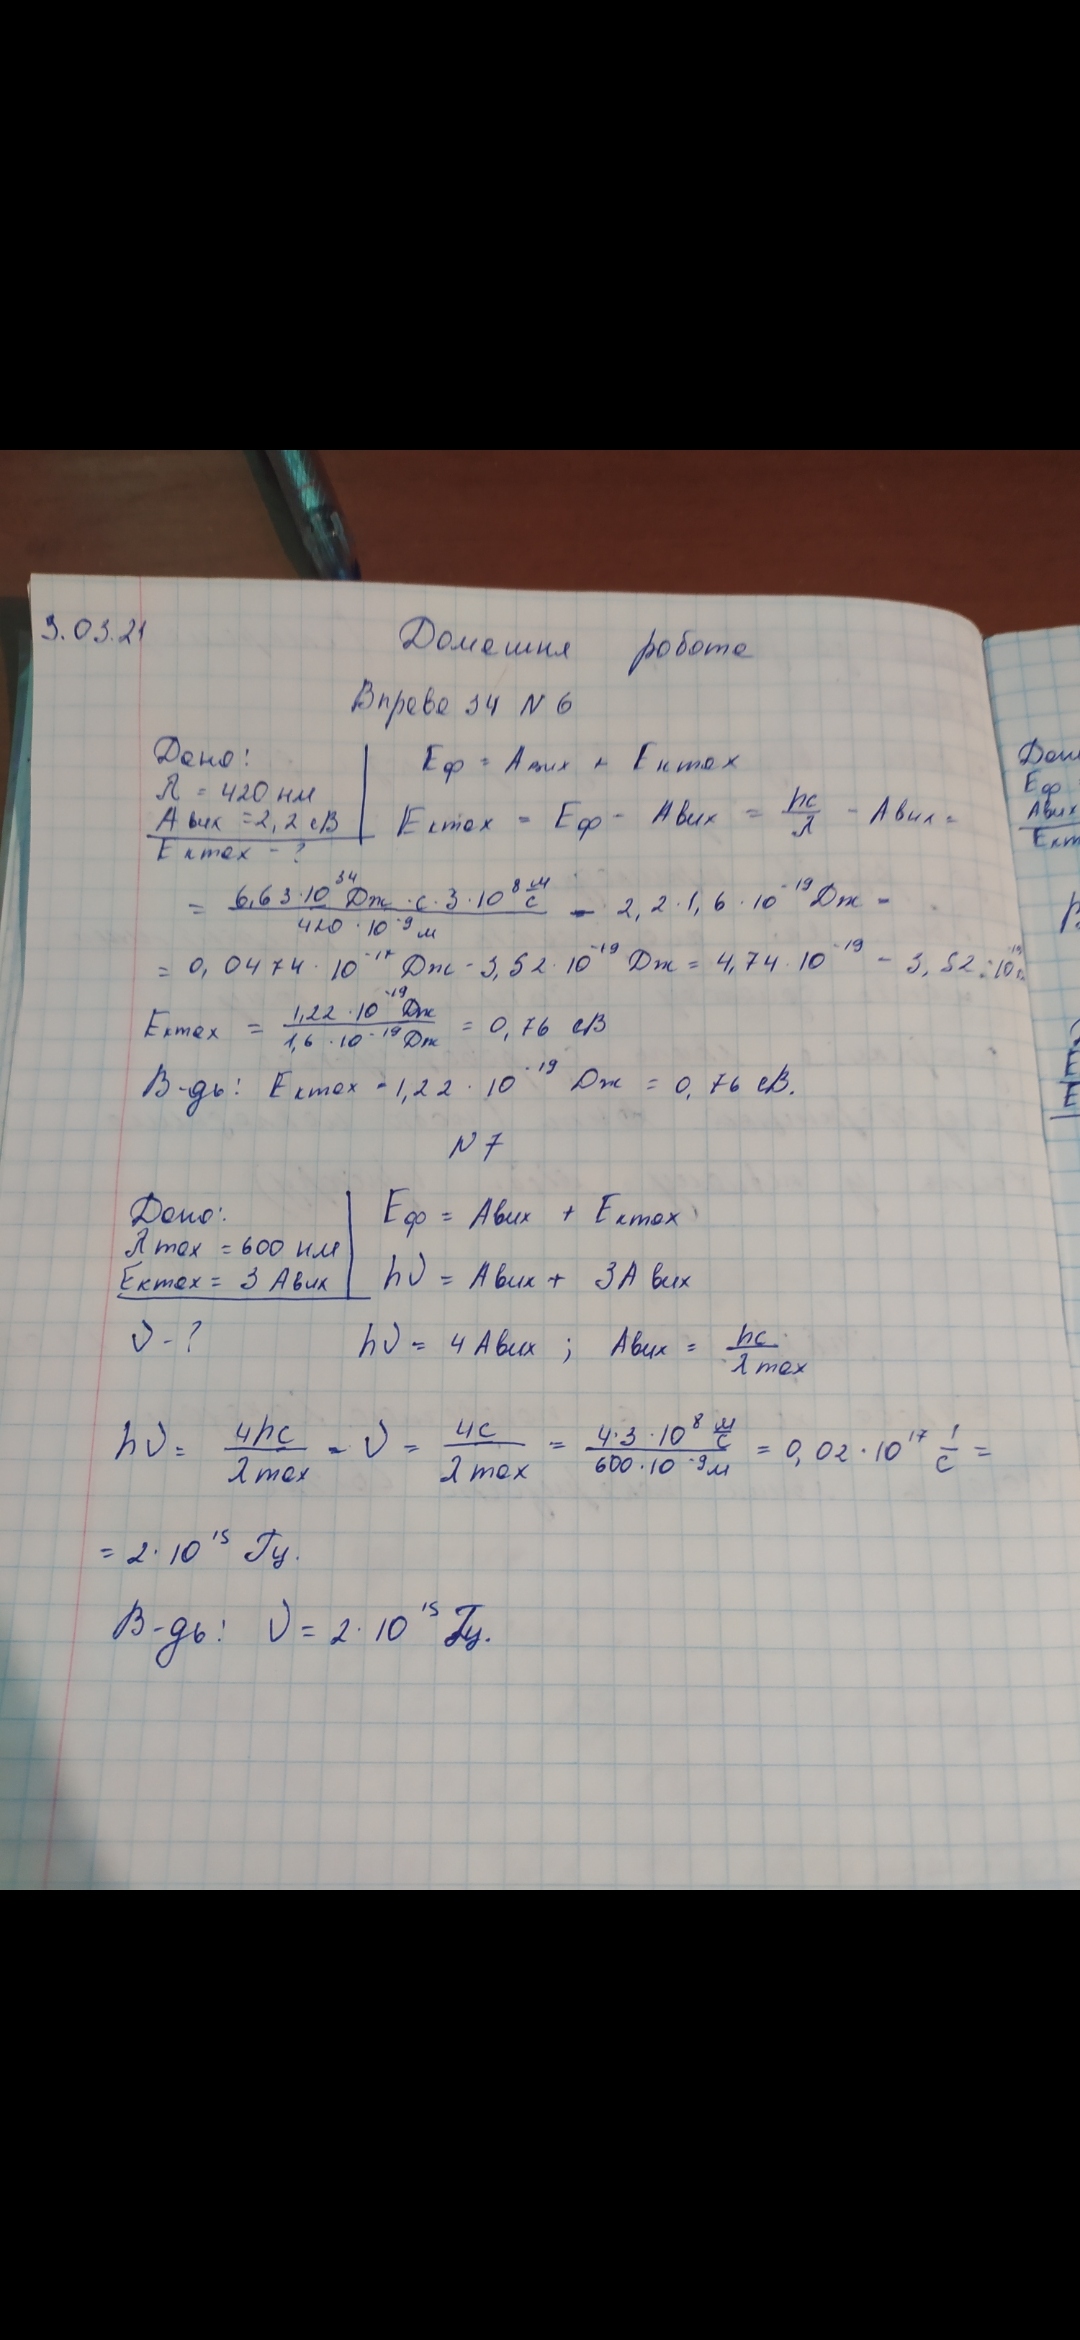 3.03.21
Домашня робота
Вправа 34 N 6
Дано:
λ = 420 нм
Aвих = 2,2 еВ
Eкmax - ?
Eф = Aвих + Eкmax
Eкmax = Eф - Aвих = hc/λ - Aвих =
= 6,63·10^34 Дж·с·3·10^8 м/с / 420·10^-9 м - 2,2·1,6·10^-19 Дж =
= 0,0474·10^-17 Дж - 3,52·10^-19 Дж = 4,74·10^-19 - 3,52·10^-19
Eкmax = 1,22·10^-19 Дж / 1,6·10^-19 Дж = 0,76 еВ
В-дь: Eкmax = 1,22·10^-19 Дж = 0,76 еВ.
N 7
Дано:
λmax = 600 нм
Eкmax = 3 Aвих
ν - ?
Eф = Aвих + Eкmax
hν = Aвих + 3Aвих
hν = 4 Aвих ; Aвих = hc/λmax
hν = 4hc/λmax - ν = 4c/λmax = 4·3·10^8 м/с / 600·10^-9 м = 0,02·10^17 1/с =
= 2·10^15 Гц.
В-дь: ν = 2·10^15 Гц.
Eф
Aвих